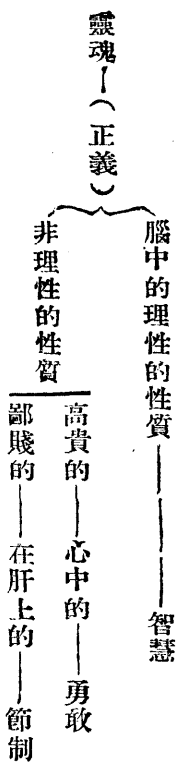 靈魂—（正義）
腦中的理性的性質———智慧
非理性的性質
高貴的——心中的——勇敢
鄙賤的——在肝上的——節制